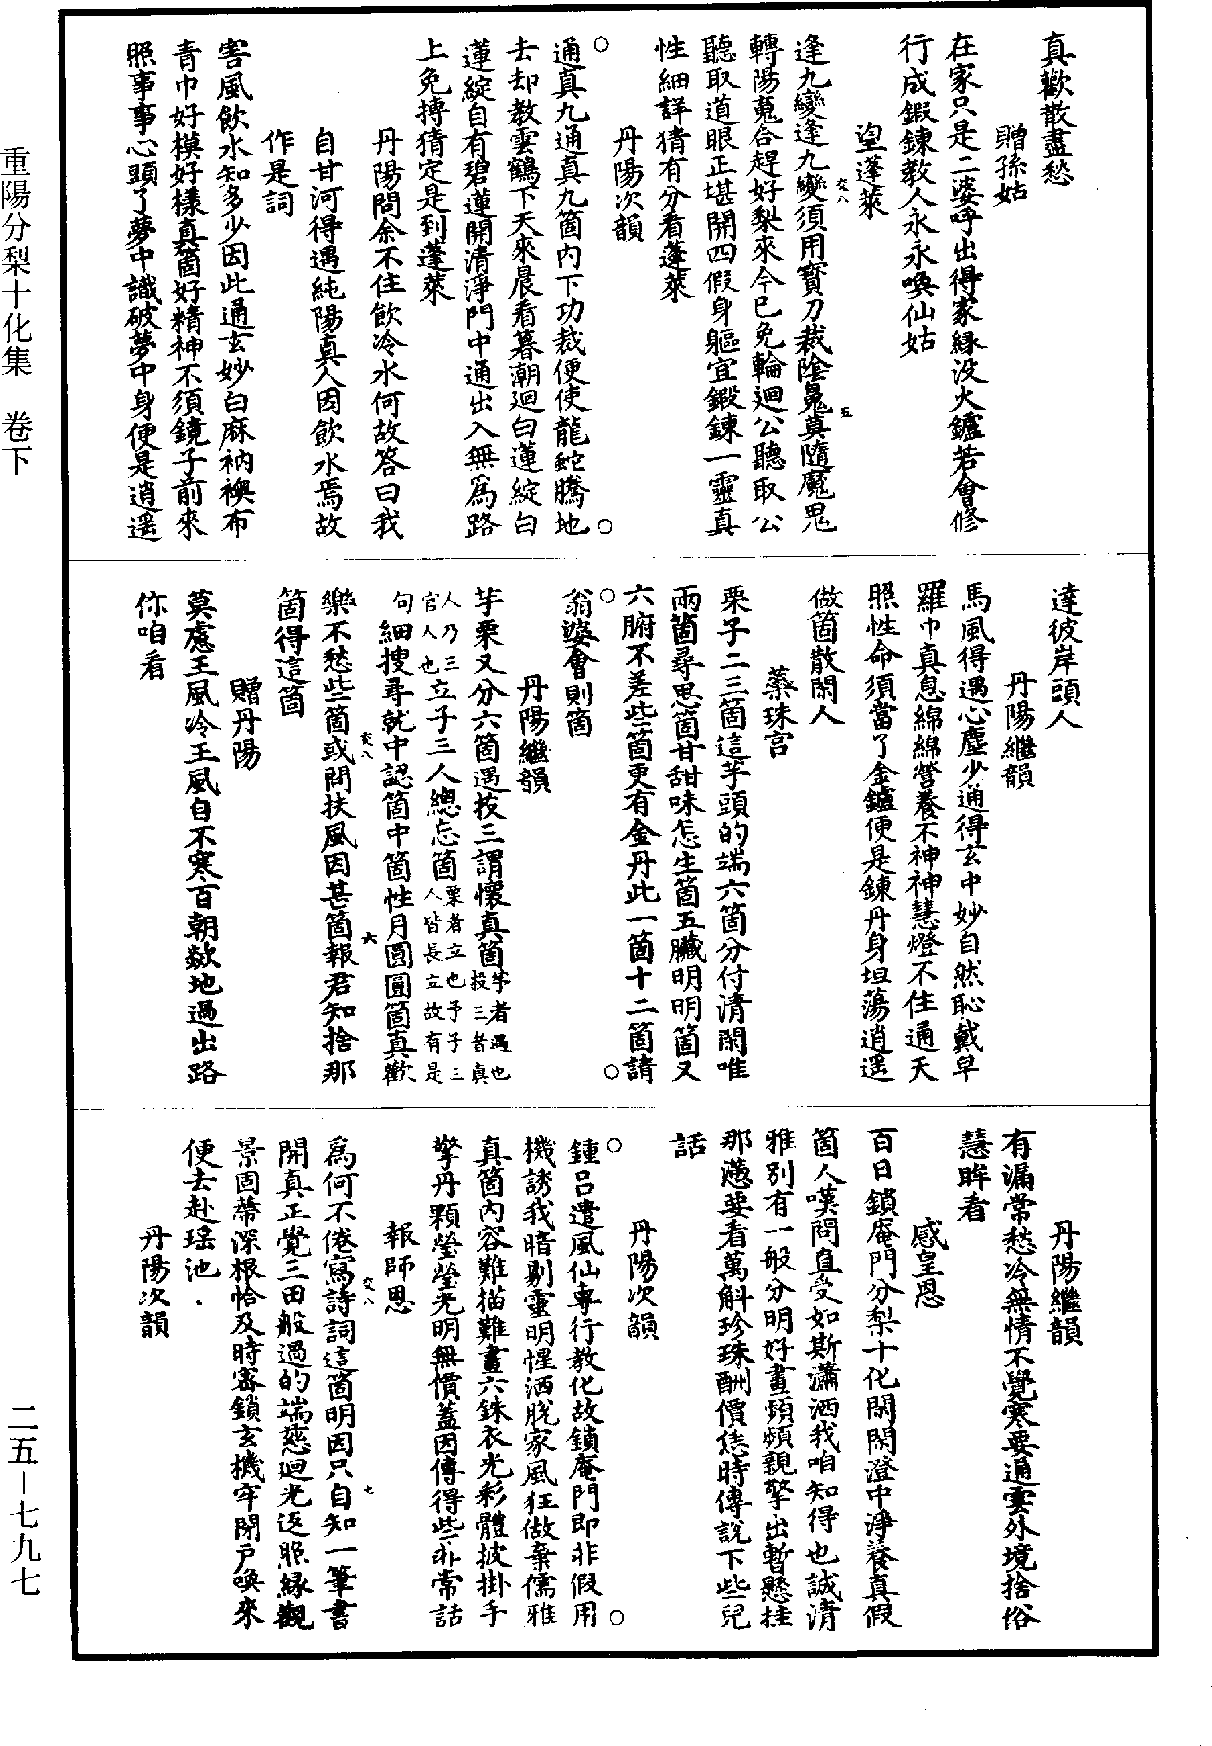 重陽分梨十化集　卷下
真歡散盡愁
贈孫姑
在家只是二婆呼出得家緣没火鑪若會修
行成鍜鍊教人永永喚仙姑
望蓬萊
逢九變逢九變須用寳刀裁陰鬼莫隨魔鬼
轉陽䰟合趕好梨來今已免輪迴公聽取公
聽取道眼正堪開四假身軀宜鍜鍊一靈真
性細詳猜有分看蓬萊
丹陽次韻
通真九通真九箇内下功裁便使龍蛇騰地
去却教雲鶴下天來晨看暮朝迴白蓮綻白
蓮綻自有碧蓮開清淨門中通出入無爲路
上免摶猜定是到蓬萊
丹陽問余不住飲冷水何故答曰我
自甘河得遇純陽真人因飲水焉故
作是詞
害風飲水知多少因此通玄妙白麻衲襖布
青巾好模好樣真箇好精神不須鏡子前來
照事事心頭了夢中識破夢中身便是逍遥
達彼岸頭人
丹陽繼韻
馬風得遇心塵少通得玄中妙自然恥戴皁
羅巾真息綿綿營養不神神慧燈不住通天
照性命須當了金鑪便是鍊丹身坦蕩逍遥
做箇散閑人
蘂珠宫
栗子二三箇這芋頭的端六箇分付清閑唯
兩箇尋思箇甘甜味怎生箇五臟明明箇又
六腑不差些箇更有金丹此一箇十二箇請
翁婆會則箇
丹陽繼韻
芋栗又分六箇遇投三謂懷真箇芋者遇也投三者真
人乃三官人也立子三人總忘箇栗者立也予子三人皆長立故有是
句細搜尋就中認箇中箇性月圓圓箇真歡
樂不愁些箇或問扶風因甚箇報君知捨那
箇得這箇
贈丹陽
莫慮王風冷王風自不寒百朝欻地過出路
你咱看
丹陽繼韻
有漏常愁冷無情不覺寒要通雲外境捨俗
慧眸看
感皇恩
百日鎖庵門分梨十化閑閑澄中淨養真假
箇人嘆問直受如斯瀟洒我咱知得也誠清
雅别有一般分明好畫頻頻親擎出暫懸挂
那懣要看萬斛珍珠酬價恁時傳說下些兒
話
丹陽次韻
鍾吕遣風仙專行教化故鎖庵門即非假用
機誘我暗剔靈明惺洒脱家風狂做棄儒雅
真箇内容難描難畫六銖衣光彩體披掛手
擎丹顆瑩瑩光明無價蓋因傳得些非常話
報師恩
爲何不倦寫詩詞這箇明因只自知一筆書
開真正覺三田般過的端慈迴光返照緣觀
景固蔕深根恰及時密鎖玄機牢閉户喚來
便去赴瑶池
丹陽次韻
二五—七九七